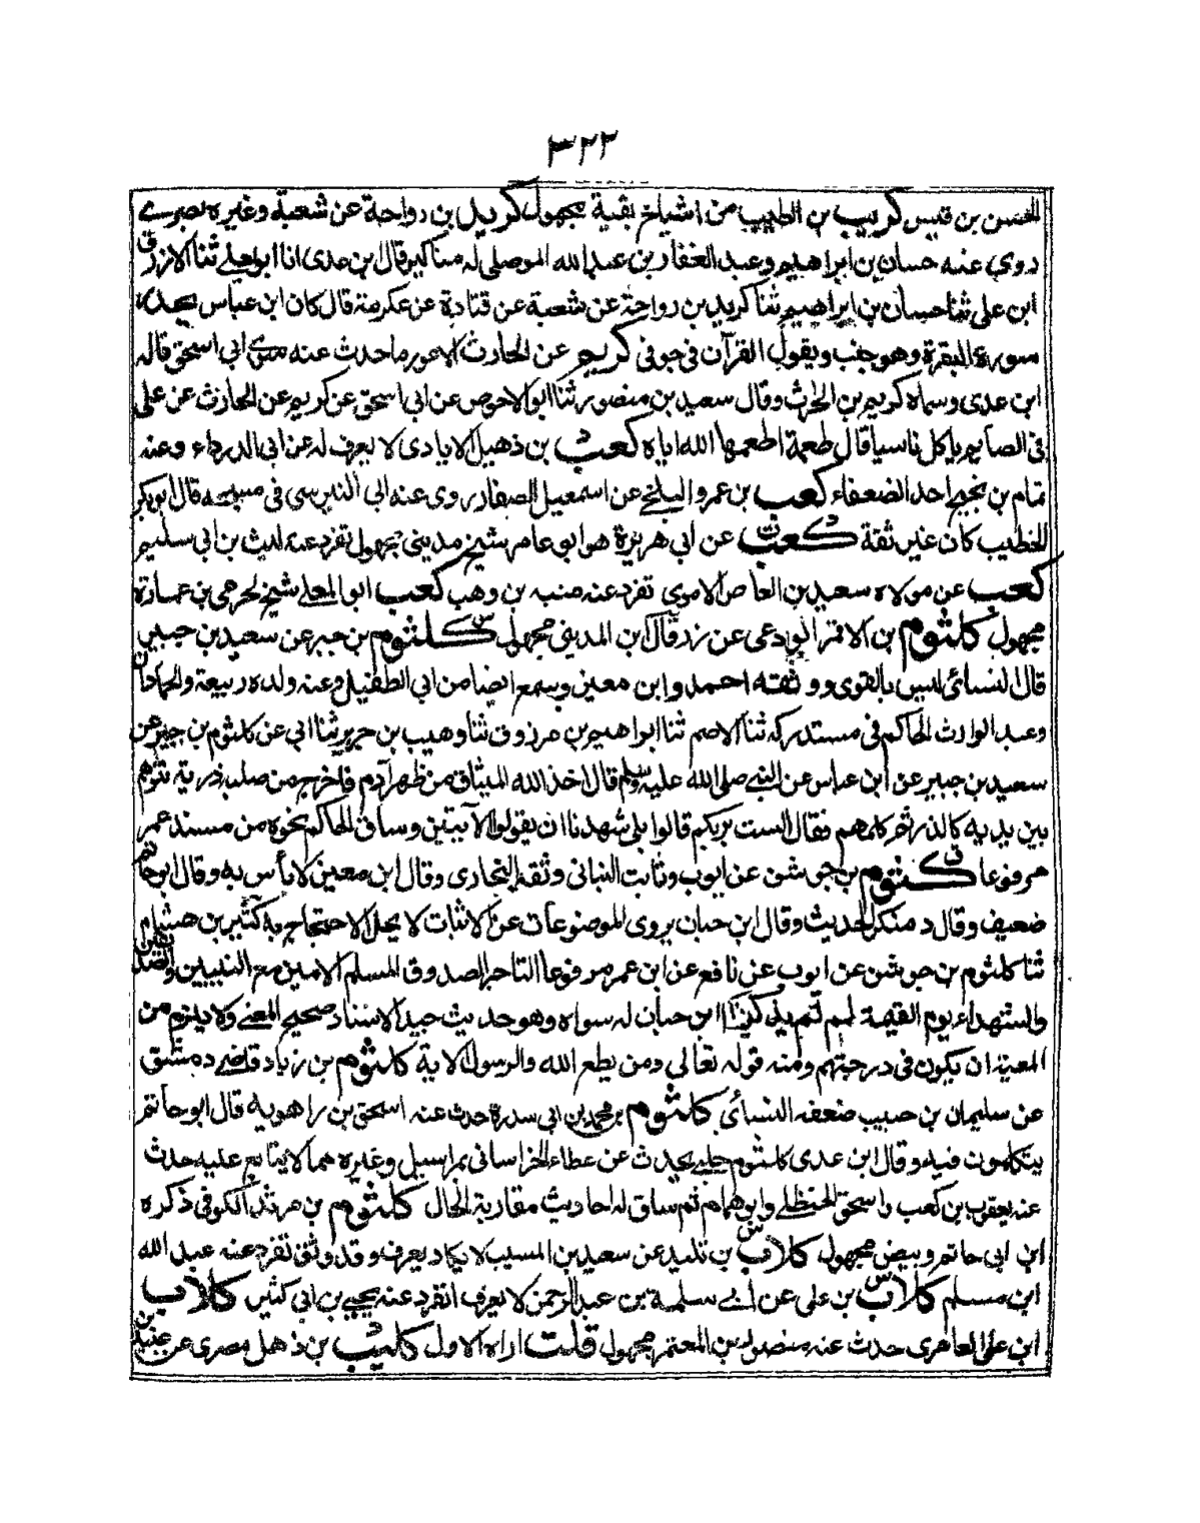 ٣٢٢
الحسن بن قيس كريب بن الطيب من اشياخ بقية مجهول كريد بن رواحة عن شعبة وغيره بصرى
روى عنه حسان بن ابراهيم وعبد الغفار بن عبد الله الموصلى له مناكير قال ابن عدى انا ابو يعلى ثنا الازرق
ابن على ثنا حسان بن ابراهيم ثنا كريد بن رواحة عن شعبة عن قتادة عن عكرمة قال كان ابن عباس
سورة البقرة وهو جنب ويقول القرآن فى جوفى كريم عن الحارث الاعور ما حدث عنه سوى ابى اسحق قاله
ابن عدى وسماه كريم بن الحرث وقال سعيد بن منصور ثنا ابو الاحوص عن ابى اسحق عن كريم عن الحارث عن على
فى الصايم ياكل ناسيا قال طعمة اطعمها الله اياه كعب بن ذهيل الايادى لا يعرف له عن ابى الدرداء وعنه
تمام بن نجيح احد الضعفاء كعب بن عمرو البلخى عن اسمعيل الصفار روى عنه ابى النرسى فى مشيخته قال ابو بكر
الخطيب كان غير ثقة كعب ت عن ابى هريرة هو ابو عامر شيخ مدينى مجهول تفرد عنه ليث بن ابى سليم
كعب عن مولاه سعيد بن العاص الاموى تفرد عنه منبه بن وهب كعب ابو المعلى شيخ لحرمى بن عمارة
مجهول كلثوم بن الاقمر الوادعى عن زر قال ابن المدينى مجهول كلثوم س بن جبر عن سعيد بن جبير
قال النسائى ليس بالقوى ووثقه احمد وابن معين وسمع ايضا من ابى الطفيل وعنه ولده ربيعة والحمادان
وعبد الوارث الحاكم فى مستدركه ثنا الاصم ثنا ابراهيم بن مرزوق ثنا وهيب بن جرير ثنا ابى عن كلثوم بن جبير عن
سعيد بن جبير عن ابن عباس عن النبى صلى الله عليه وسلم قال اخذ الله الميثاق من ظهر آدم فاخرج من صلبه ذرية نثرهم
بين يديه كالذر ثم كلمهم فقال الست بربكم قالوا بلى شهدنا ان يقولوا الآيتين وساق الحاكم نحوه من مسند عمر
مرفوعا كلثوم ق بن جوشن عن ايوب وثابت البنانى وثقه البخارى وقال ابن معين لا بأس به وقال ابو حاتم
ضعيف وقال د منكر الحديث وقال ابن حبان يروى الموضوعات عن الاثبات لا يحل الاحتجاج به كثير بن هشام
ثنا كلثوم بن جوشن عن ايوب عن نافع عن ابن عمر مرفوعا التاجر الصدوق المسلم الامين مع النبيين والصديقين
والشهداء يوم القيمة لم ابن حبان له سواه وهو حديث جيد الاسناد صحيح المعنى ولا يلزم من
المعية ان يكون فى درجتهم ومنه قوله تعالى ومن يطع الله والرسول الاية كلثوم بن زياد قاضى دمشق
عن سليمان بن حبيب ضعفه النسائى كلثوم بن محمد بن ابى سدرة حدث عنه اسحق بن راهويه قال ابو حاتم
يتكلمون فيه وقال ابن عدى كلثوم حلبى يحدث عن عطاء الخراسانى بمراسيل وغيره مما لا يتابع عليه حدث
عنه يعقوب بن كعب واسحق الحنظلى وابو همام ثم ساق له احاديث مقاربة الحال كلثوم بن مرثد الكوفى ذكره
ابن ابى حاتم وبيض مجهول كلاب س بن تليد عن سعيد بن المسيب لا يكاد يعرف وقد وثق تفرد عنه عبد الله
ابن مسلم كلاب س بن على عن ابى سلمة بن عبد الرحمن لا يعرف انفرد عنه يحيى بن ابى كثير كلاب
ابن على العامرى حدث عنه منصور بن المعتمر مجهول قلت اراه الاول كليب د بن ذهل مصرى عن عبيد بن